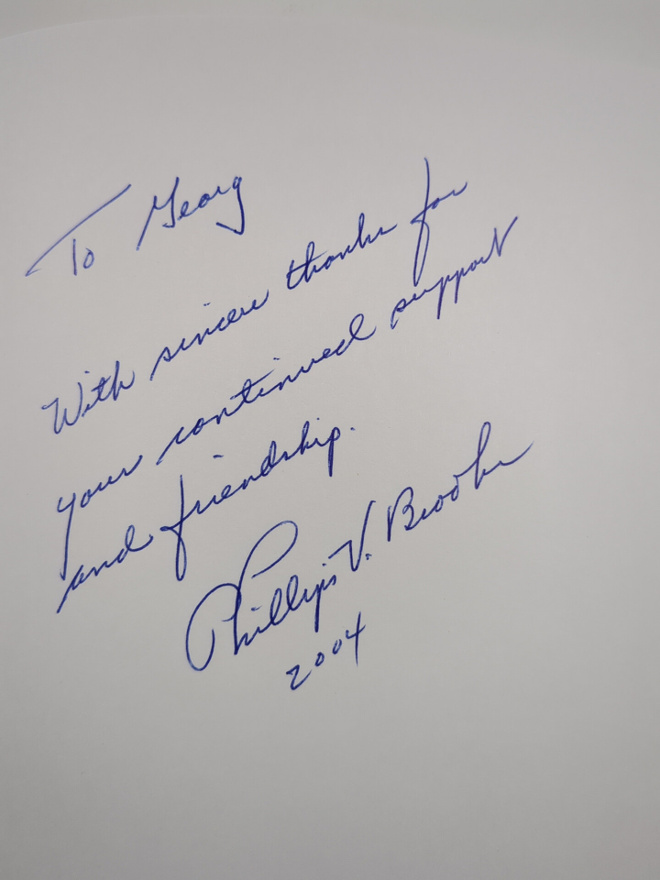 To Georg
With sincere thanks for
your continued support
and friendship.
Phillips V. Brooks
2004